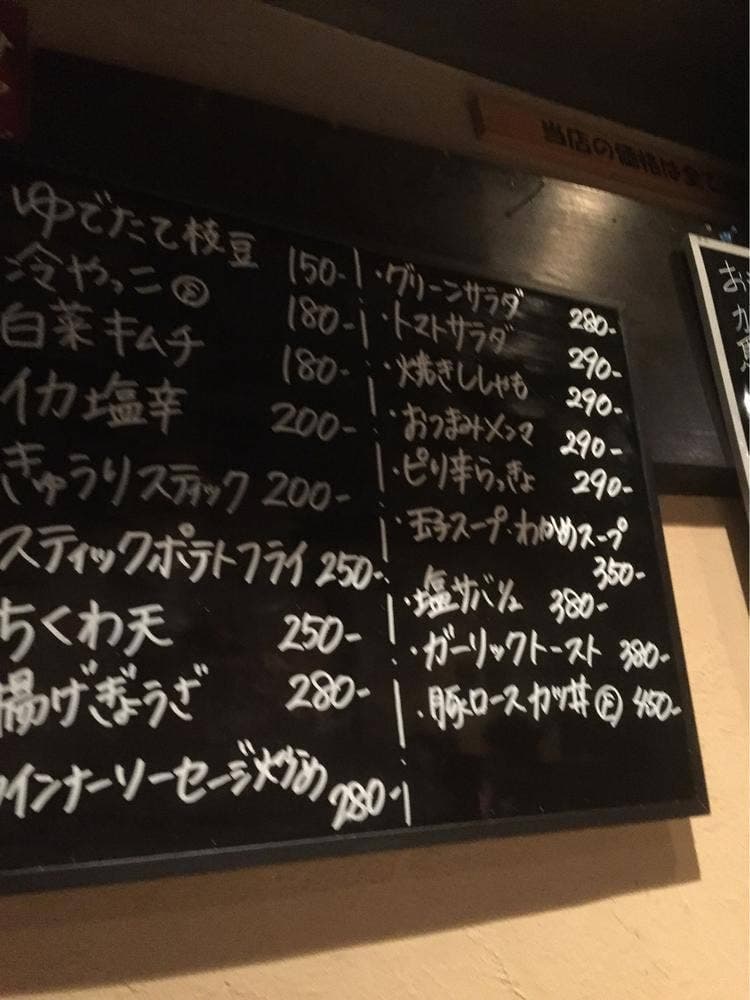 当店の価格は全て
ゆでたて枝豆 150-
冷やっこ 180-
白菜キムチ 180-
イカ塩辛 200-
きゅうりスティック 200-
スティックポテトフライ 250-
ちくわ天 250-
揚げぎょうざ 280-
ウインナーソーセージ炒め 280-
・グリーンサラダ 280-
・トマトサラダ 290-
・焼きししゃも 290-
・おつまみメンマ 290-
・ピリ辛らっきょ 290-
・玉子スープ・わかめスープ
350-
・塩サバ 380-
・ガーリックトースト 380-
・豚ロースカツ丼 450-